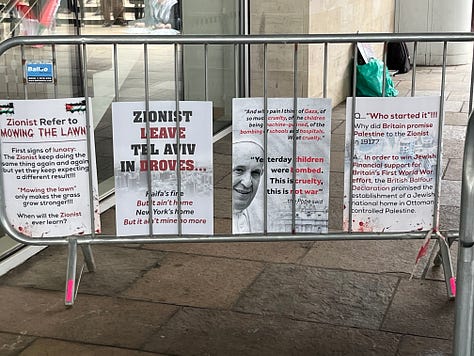 Zionist Refer to
MOWING THE LAWN
First signs of lunacy:
The Zionist keep doing the
same thing again and again
but yet they keep expecting
a different result!!!!
"Mowing the lawn"
only makes the grass
grow stronger!!!
When will the Zionist
ever learn?
ZIONIST
LEAVE
TEL AVIV
IN DROVES...
Haifa's fine
But it ain't home
New York's home
But it ain't mine no more
And with pain I think of Gaza, of
so much cruelty, of the children
being machine-gunned, of the
bombings of schools and hospitals.
What cruelty.
"Yesterday children
were bombed.
This is cruelty,
this is not war"
the Pope said
Q... "Who started it"!!!
Why did Britain promise
Palestine to the Zionist
in 1917?
A... In order to win Jewish
financial support for
Britain's First World War
effort, the British Balfour
Declaration promised the
establishment of a Jewish
national home in Ottoman
controlled Palestine.